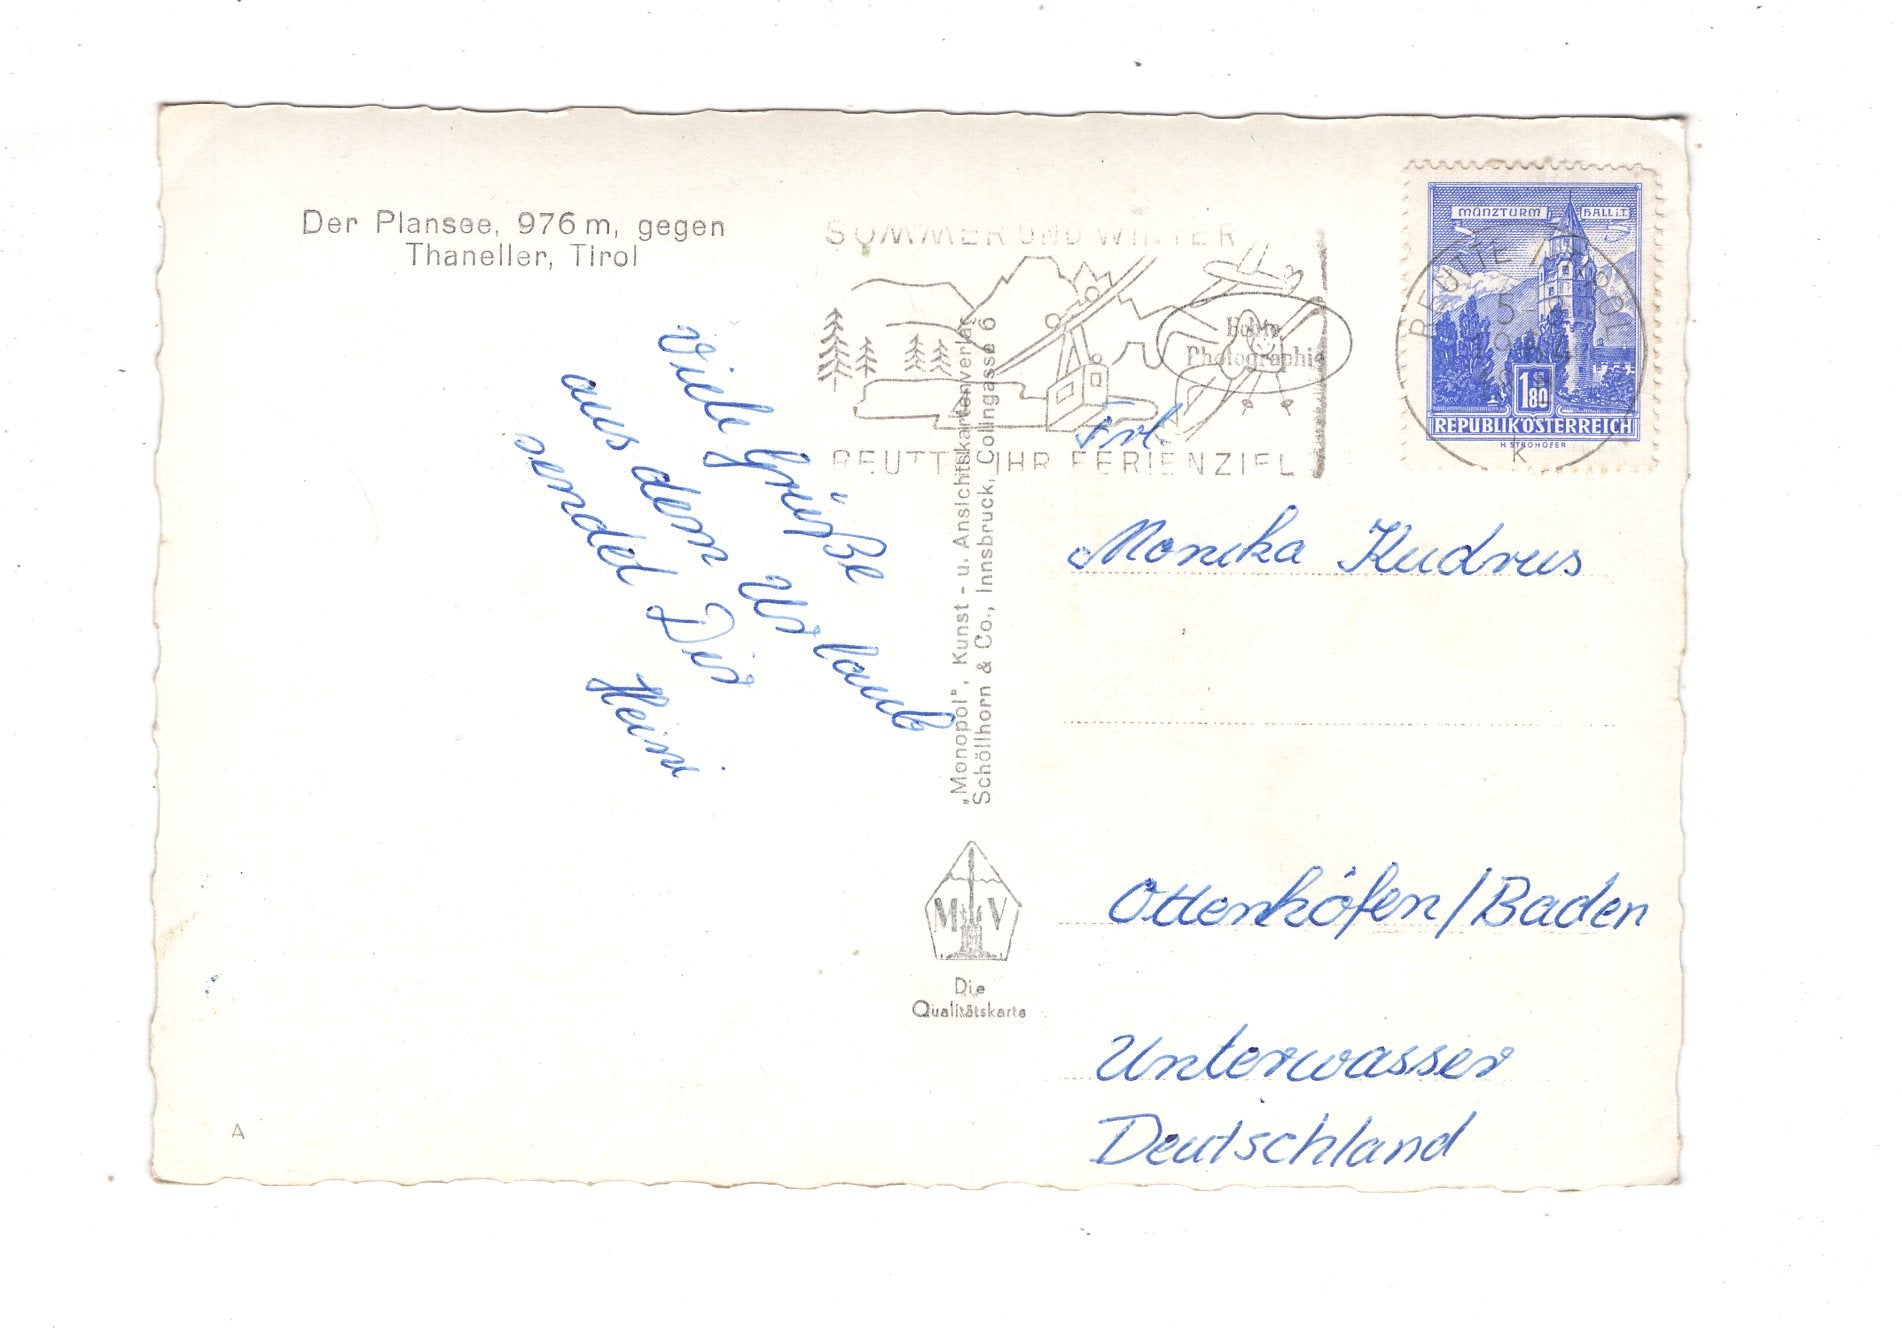 Der Plansee, 976 m, gegen
Thaneller, Tirol
Viele Grüße
aus dem Urlaub
sendet Dir
Heini
SOMMER UND WINTER
REUTTE IHR FERIENZIEL
Echte
Photographie
MÜNZTURM HALL i.T.
REUTTE
5
1 80
REPUBLIK ÖSTERREICH
H. STROHOFER
k
„Monopol", Kunst- u. Ansichtskartenverlag
Schöllhorn & Co., Innsbruck, Colingasse 6
M V
Die
Qualitätskarte
Frl.
Monika Kudrus
Ottenhöfen/Baden
Unterwasser
Deutschland
A